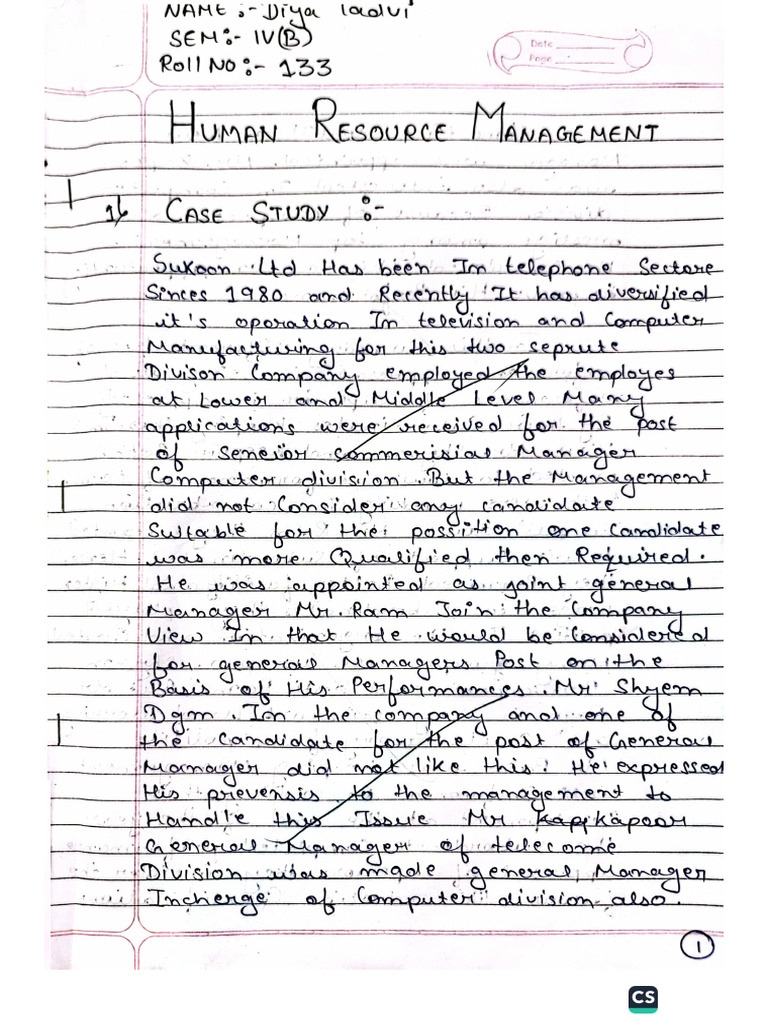 NAME :- Diya ladvi
SEM:- IV(B)
Roll NO:- 133
Date
Page
HUMAN RESOURCE MANAGEMENT
1) CASE STUDY :-
Sukoon Ltd Has been In telephone Sectore
Sinces 1980 and Recently It has diversified
it's oporation In television and Computer
Manufacturing for this two seprute
Divison Company employed the employes
at Lower and Middle Level Many
applications were received for the post
of Seneior Commerisial Manager
Computer division. But the Management
did not Consider any candidate
Suitable for the possition one Candidate
was more Qualified then Required.
He was appointed as joint general
Manager Mr. Ram Join the Company
View In that He would be Considered
for general Managers Post on the
Basis of His Performances. Mr Shyem
Dgm. In the company and one of
the Candidate for the post of General
Manager did not like this. He expressed
His prevensis to the management to
Handle this Issue Mr Kapoor
General Manager of telecome
Division was made general Manager
Incherge of Computer division also.
1
CS